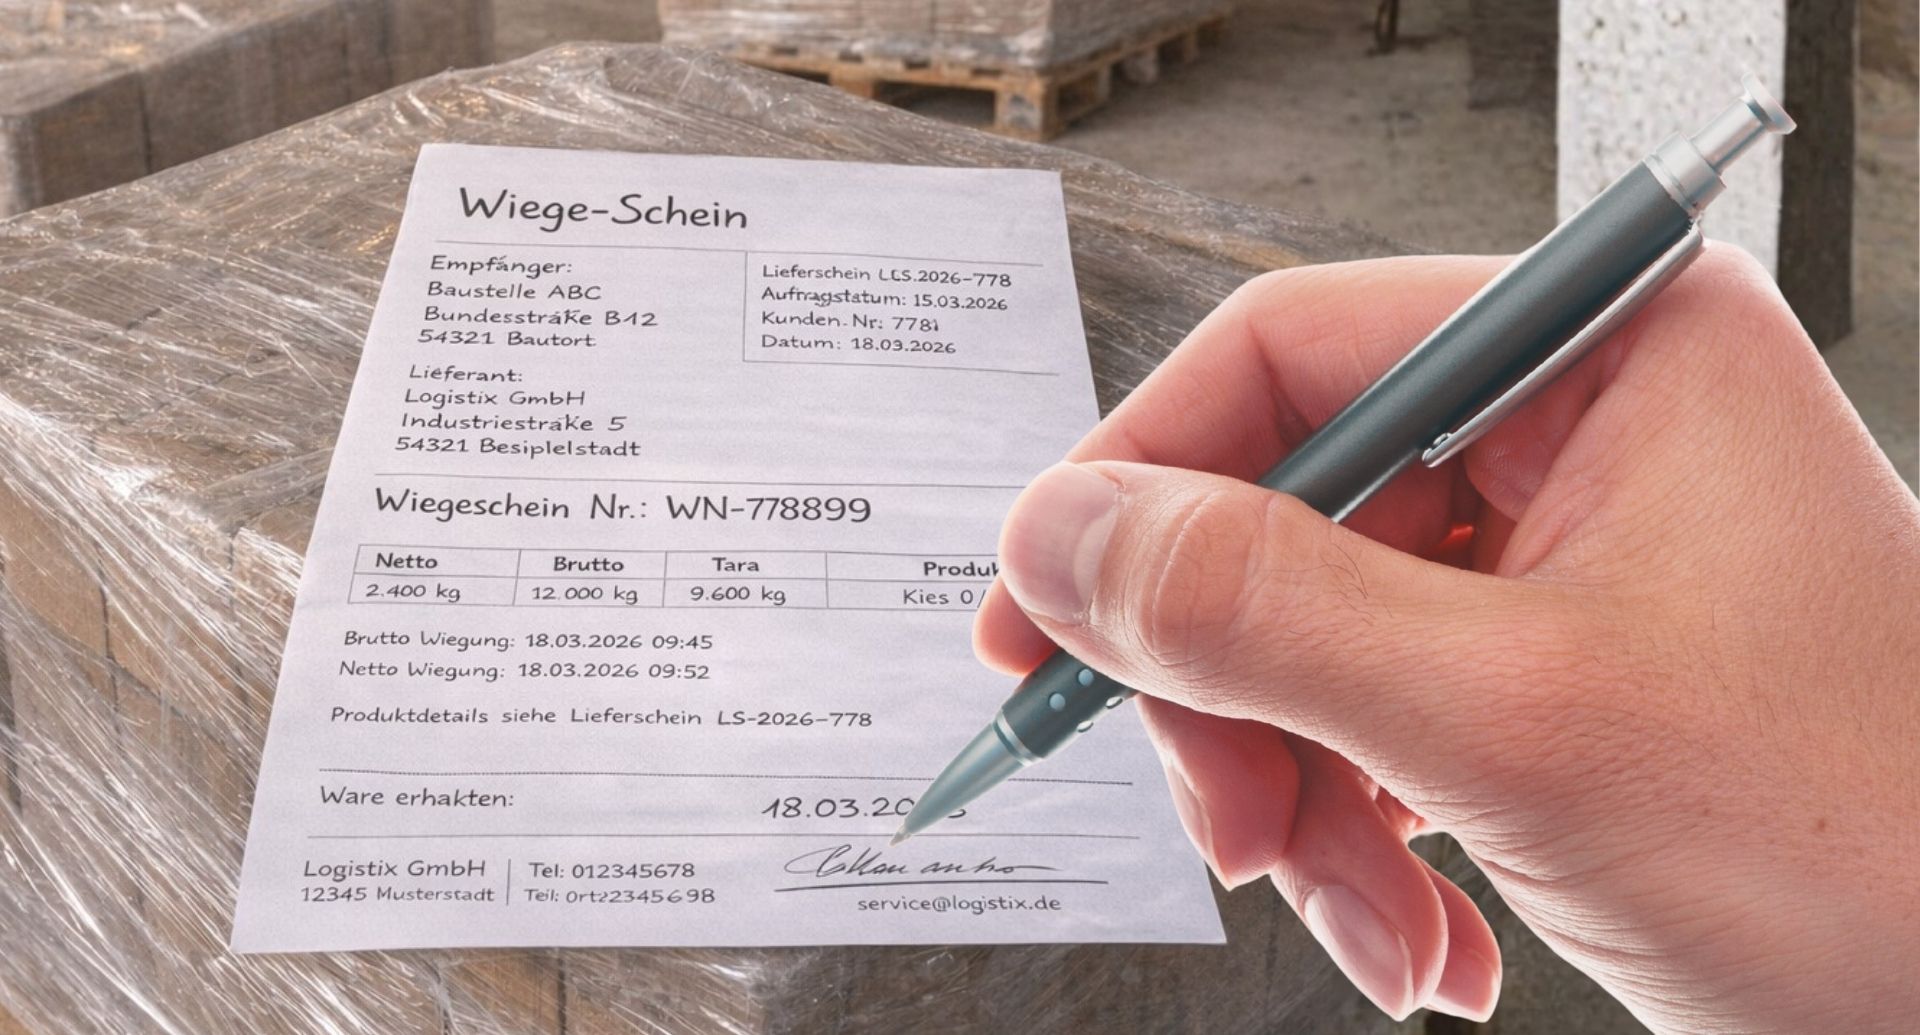 Wiege-Schein
Empfänger:
Baustelle ABC
Bundesstraße B12
54321 Bautort
Lieferschein LCS.2026-778
Aufragstatum: 15.03.2026
Kunden.Nr: 7781
Datum: 18.03.2026
Lieferant:
Logistix GmbH
Industriestraße 5
54321 Besiplelstadt
Wiegeschein Nr.: WN-778899
Netto Brutto Tara
2.400 kg 12.000 kg 9.600 kg Kies
Brutto Wiegung: 18.03.2026 09:45
Netto Wiegung: 18.03.2026 09:52
Produktdetails siehe Lieferschein LS-2026-778
Ware erhakten:
Logistix GmbH Tel: 012345678
12345 Musterstadt
service@logistix.de